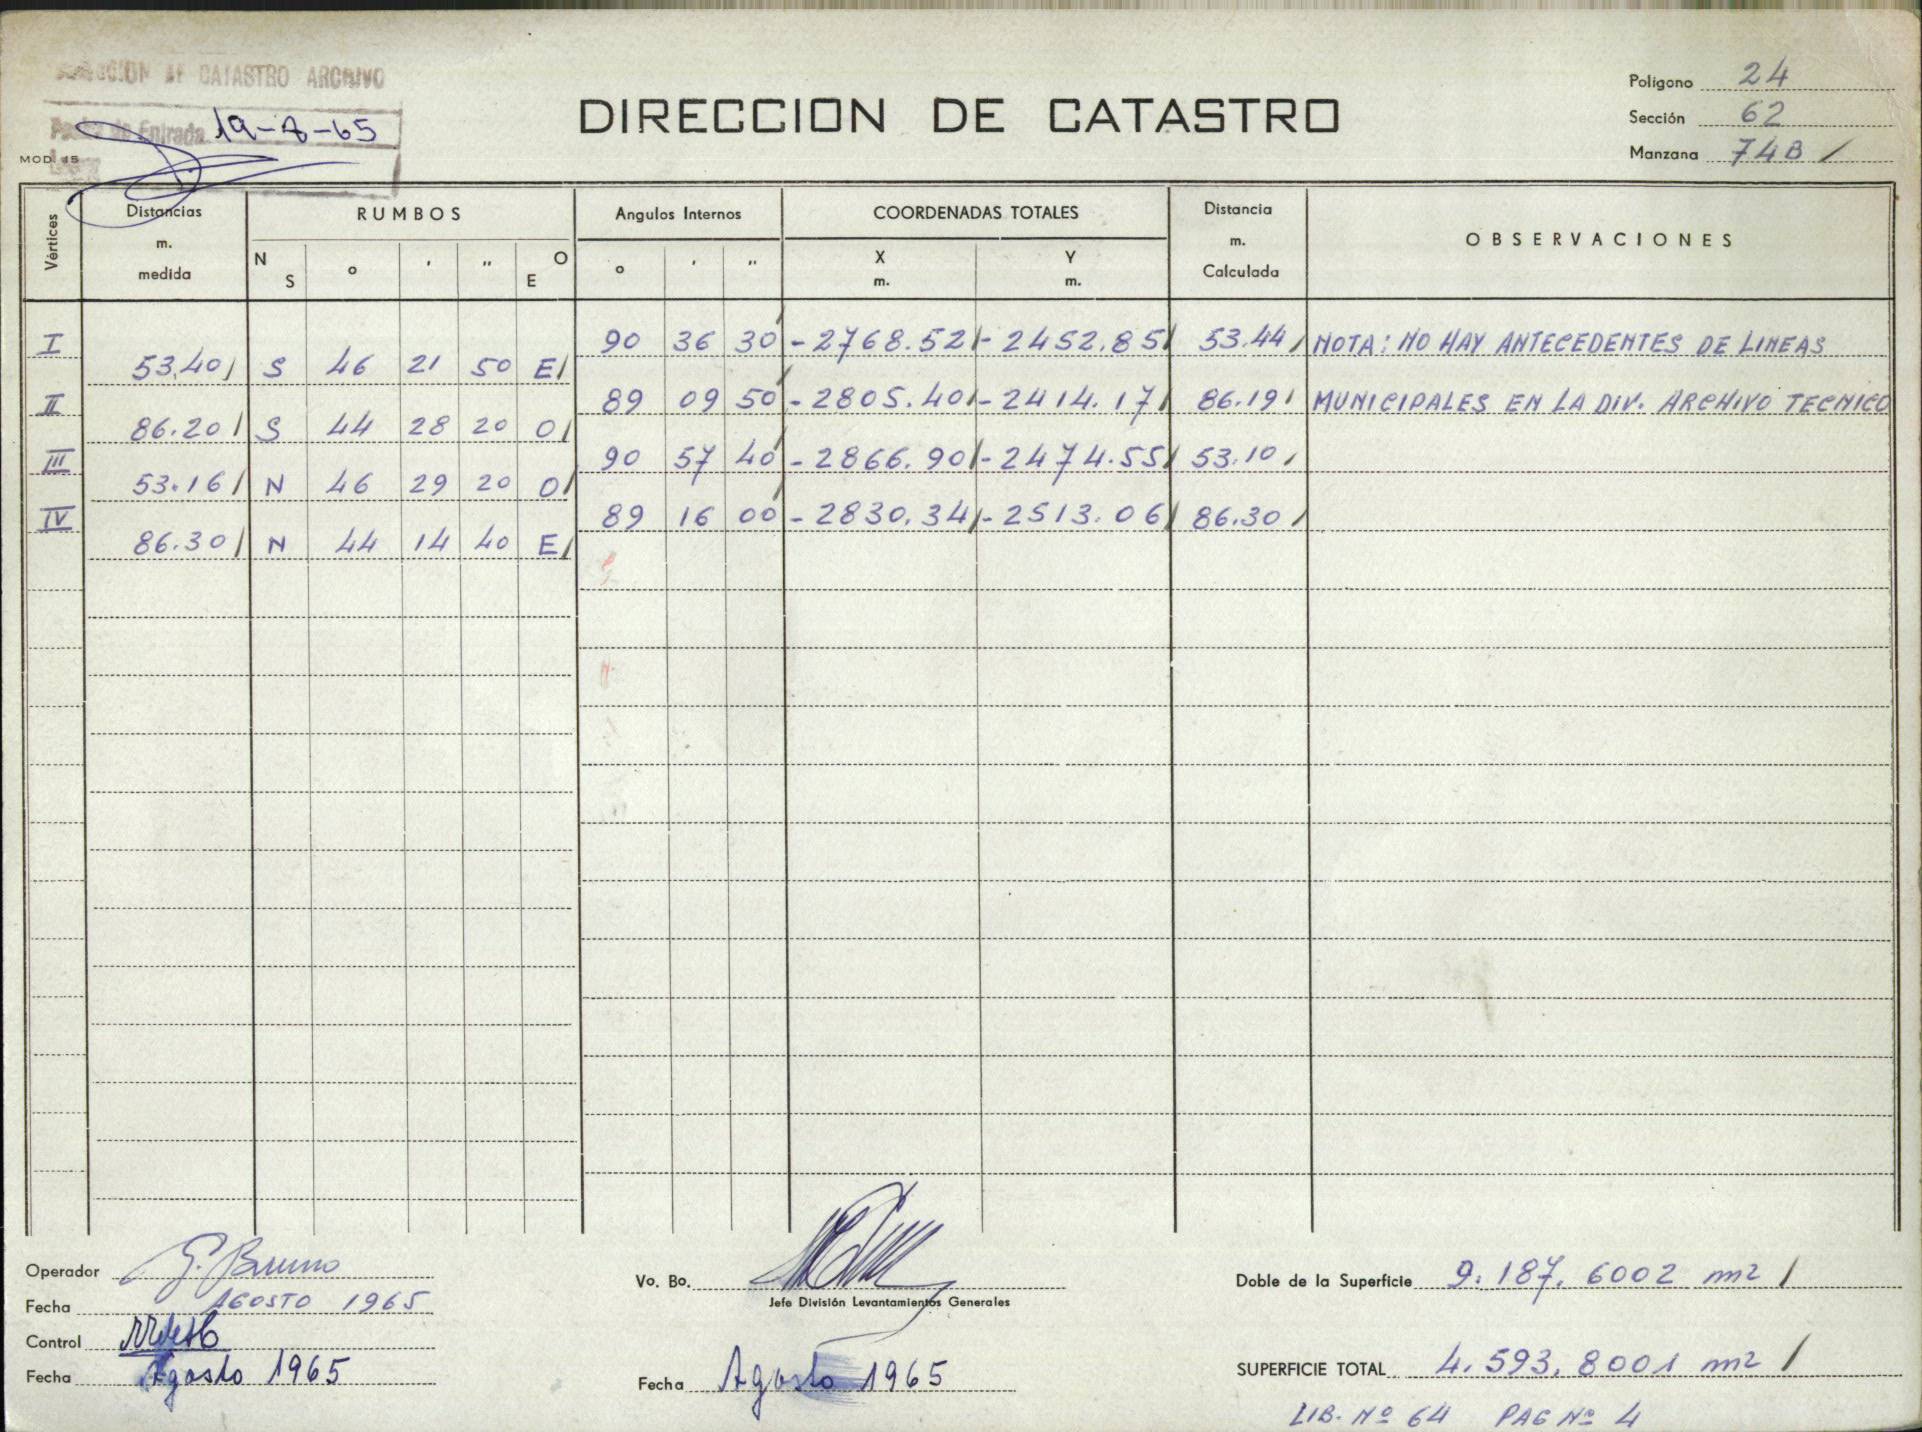 DIRECCION DE CATASTRO ARCHIVO
Fecha de Entrada 19-8-65
MOD 15
DIRECCION DE CATASTRO
Polígono 24
Sección 62
Manzana 74B /
Vértices Distancias m. medida RUMBOS Angulos Internos COORDENADAS TOTALES Distancia m. Calculada OBSERVACIONES
N S ° ' " O E ° ' " X m. Y m.
I 90 36 30 -2768.52 -2452.85 53.44 NOTA: NO HAY ANTECEDENTES DE LINEAS
53.40 S 46 21 50 E
II 89 09 50 -2805.40 -2414.17 86.19 MUNICIPALES EN LA DIV. ARCHIVO TECNICO
86.20 S 44 28 20 O
III 90 57 40 -2866.90 -2474.55 53.10
53.16 N 46 29 20 O
IV 89 16 00 -2830.34 -2513.06 86.30
86.30 N 44 14 40 E
Operador G. Bruno
Fecha AGOSTO 1965
Control
Fecha Agosto 1965
Vo. Bo.
Jefe División Levantamientos Generales
Fecha Agosto 1965
Doble de la Superficie 9.187,6002 m2 /
SUPERFICIE TOTAL 4.593,8001 m2 /
LIB. Nº 64 PAG Nº 4